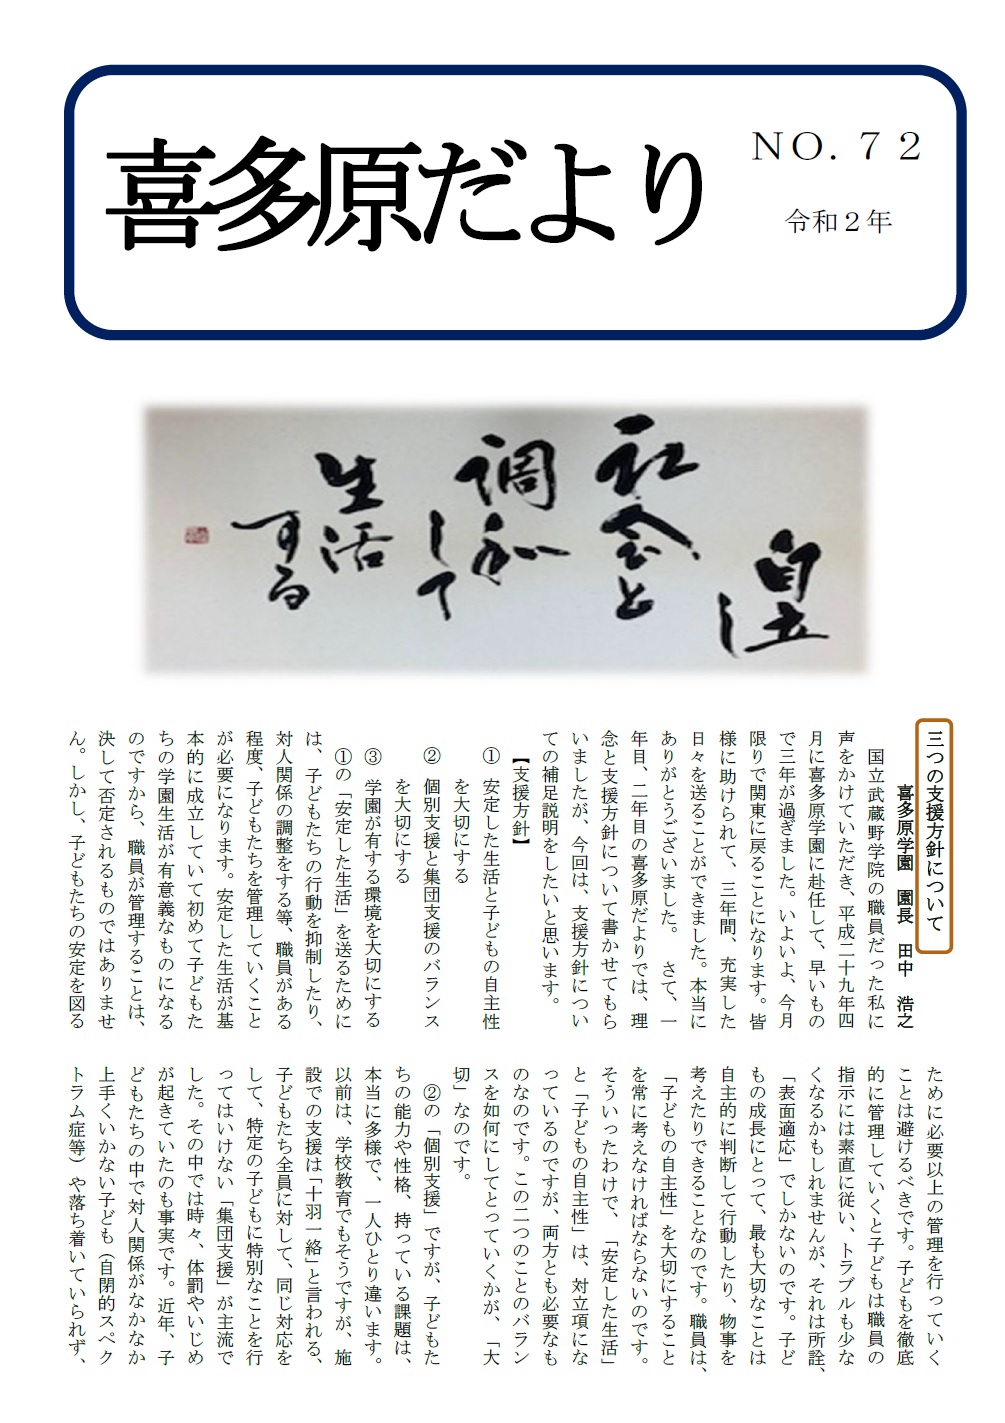 喜多原だより
NO.７２
令和２年
自立
し
社会と
調和
して
生活
する
三つの支援方針について
喜多原学園　園長　田中　浩之
国立武蔵野学院の職員だった私に
声をかけていただき、平成二十九年四
月に喜多原学園に赴任して、早いもの
で三年が過ぎました。いよいよ、今月
限りで関東に戻ることになります。皆
様に助けられて、三年間、充実した
日々を送ることができました。本当に
ありがとうございました。　さて、一
年目、二年目の喜多原だよりでは、理
念と支援方針について書かせてもら
いましたが、今回は、支援方針につい
ての補足説明をしたいと思います。
【支援方針】
①　安定した生活と子どもの自主性
を大切にする
②　個別支援と集団支援のバランス
を大切にする
③　学園が有する環境を大切にする
①の「安定した生活」を送るために
は、子どもたちの行動を抑制したり、
対人関係の調整をする等、職員がある
程度、子どもたちを管理していくこと
が必要になります。安定した生活が基
本的に成立していて初めて子どもた
ちの学園生活が有意義なものになる
のですから、職員が管理することは、
決して否定されるものではありませ
ん。しかし、子どもたちの安定を図る
ために必要以上の管理を行っていく
ことは避けるべきです。子どもを徹底
的に管理していくと子どもは職員の
指示には素直に従い、トラブルも少な
くなるかもしれませんが、それは所詮、
「表面適応」でしかないのです。子ど
もの成長にとって、最も大切なことは
自主的に判断して行動したり、物事を
考えたりできることなのです。職員は、
「子どもの自主性」を大切にすること
を常に考えなければならないのです。
そういったわけで、「安定した生活」
と「子どもの自主性」は、対立項にな
っているのですが、両方とも必要なも
のなのです。この二つのことのバラン
スを如何にしてとっていくかが、「大
切」なのです。
②の「個別支援」ですが、子どもた
ちの能力や性格、持っている課題は、
本当に多様で、一人ひとり違います。
以前は、学校教育でもそうですが、施
設での支援は「十羽一絡」と言われる、
子どもたち全員に対して、同じ対応を
して、特定の子どもに特別なことを行
ってはいけない「集団支援」が主流で
した。その中では時々、体罰やいじめ
が起きていたのも事実です。近年、子
どもたちの中で対人関係がなかなか
上手くいかない子ども（自閉的スペク
トラム症等）や落ち着いていられず、